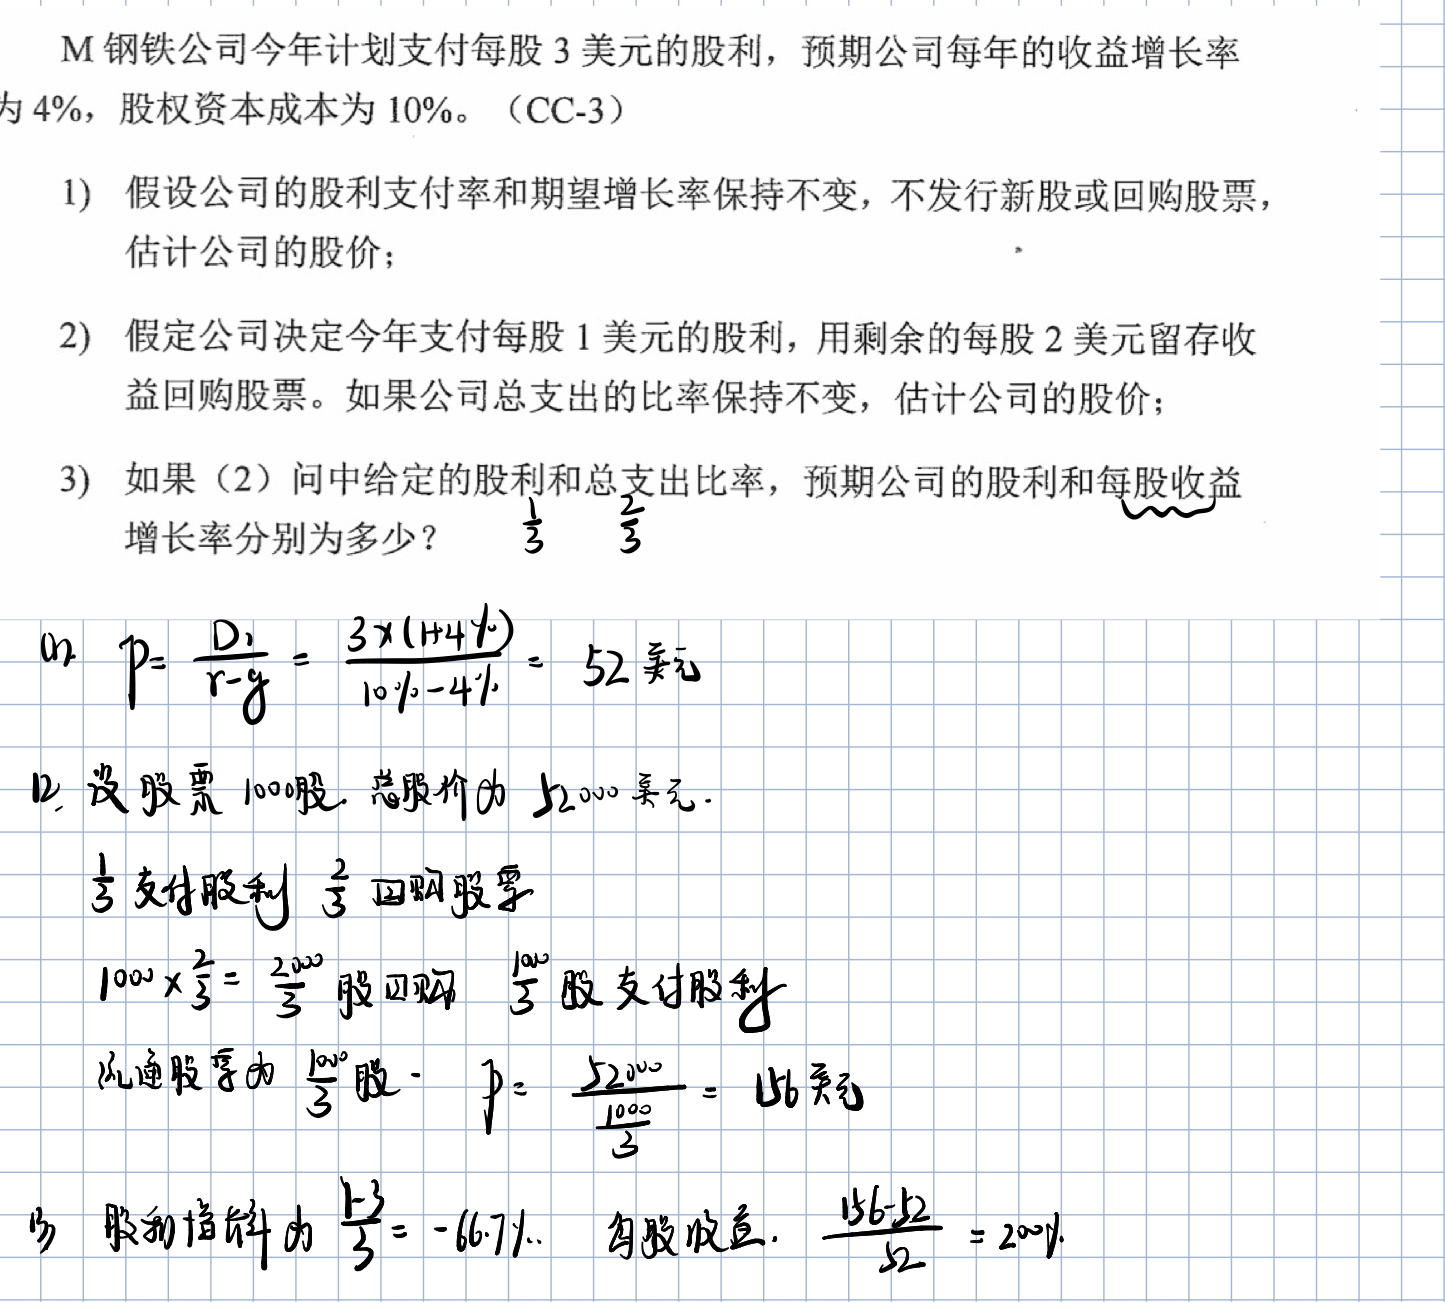 M 钢铁公司今年计划支付每股 3 美元的股利，预期公司每年的收益增长率
为 4%，股权资本成本为 10%。（CC-3）
1) 假设公司的股利支付率和期望增长率保持不变，不发行新股或回购股票，
估计公司的股价；
2) 假定公司决定今年支付每股 1 美元的股利，用剩余的每股 2 美元留存收
益回购股票。如果公司总支出的比率保持不变，估计公司的股价；
3) 如果（2）问中给定的股利和总支出比率，预期公司的股利和每股收益
增长率分别为多少？
1/3 2/3
(1). P= D1/(r-g) = 3×(1+4%)/(10%-4%) = 52 美元
(2). 设股票 1000股. 总股价为 52000 美元.
1/3 支付股利 2/3 回购股票
1000×2/3 = 2000/3 股回购 1000/3 股支付股利
流通股票为 1000/3 股. P= 52000/(1000/3) = 156 美元
(3) 股利增长率为 (1-3)/3 = -66.7%. 每股收益. (156-52)/52 = 200%.